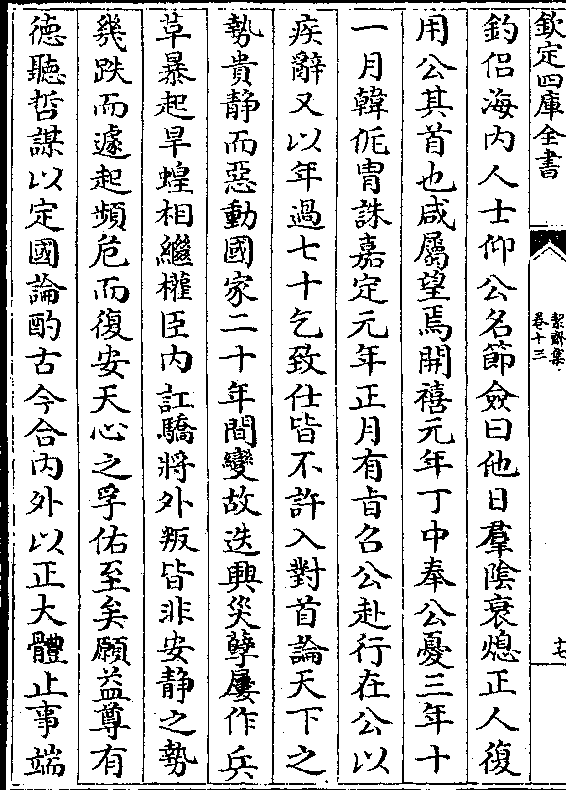 欽定四庫全書
絜齋集
卷十三
十七
釣侣海内人士仰公名節僉曰他日羣陰衰熄正人復
用公其首也咸屬望焉開禧元年丁中奉公憂三年十
一月韓侂胄誅嘉定元年正月有㫖召公赴行在公以
疾辭又以年過七十乞致仕皆不許入對首論天下之
勢貴静而惡動國家二十年間變故迭興災孽屢作兵
草暴起旱蝗相繼權臣内訌驕將外叛皆非安静之勢
幾跌而遽起頻危而復安天心之孚佑至矣願益尊有
德聽哲謀以定國論酌古今合内外以正大體止事端